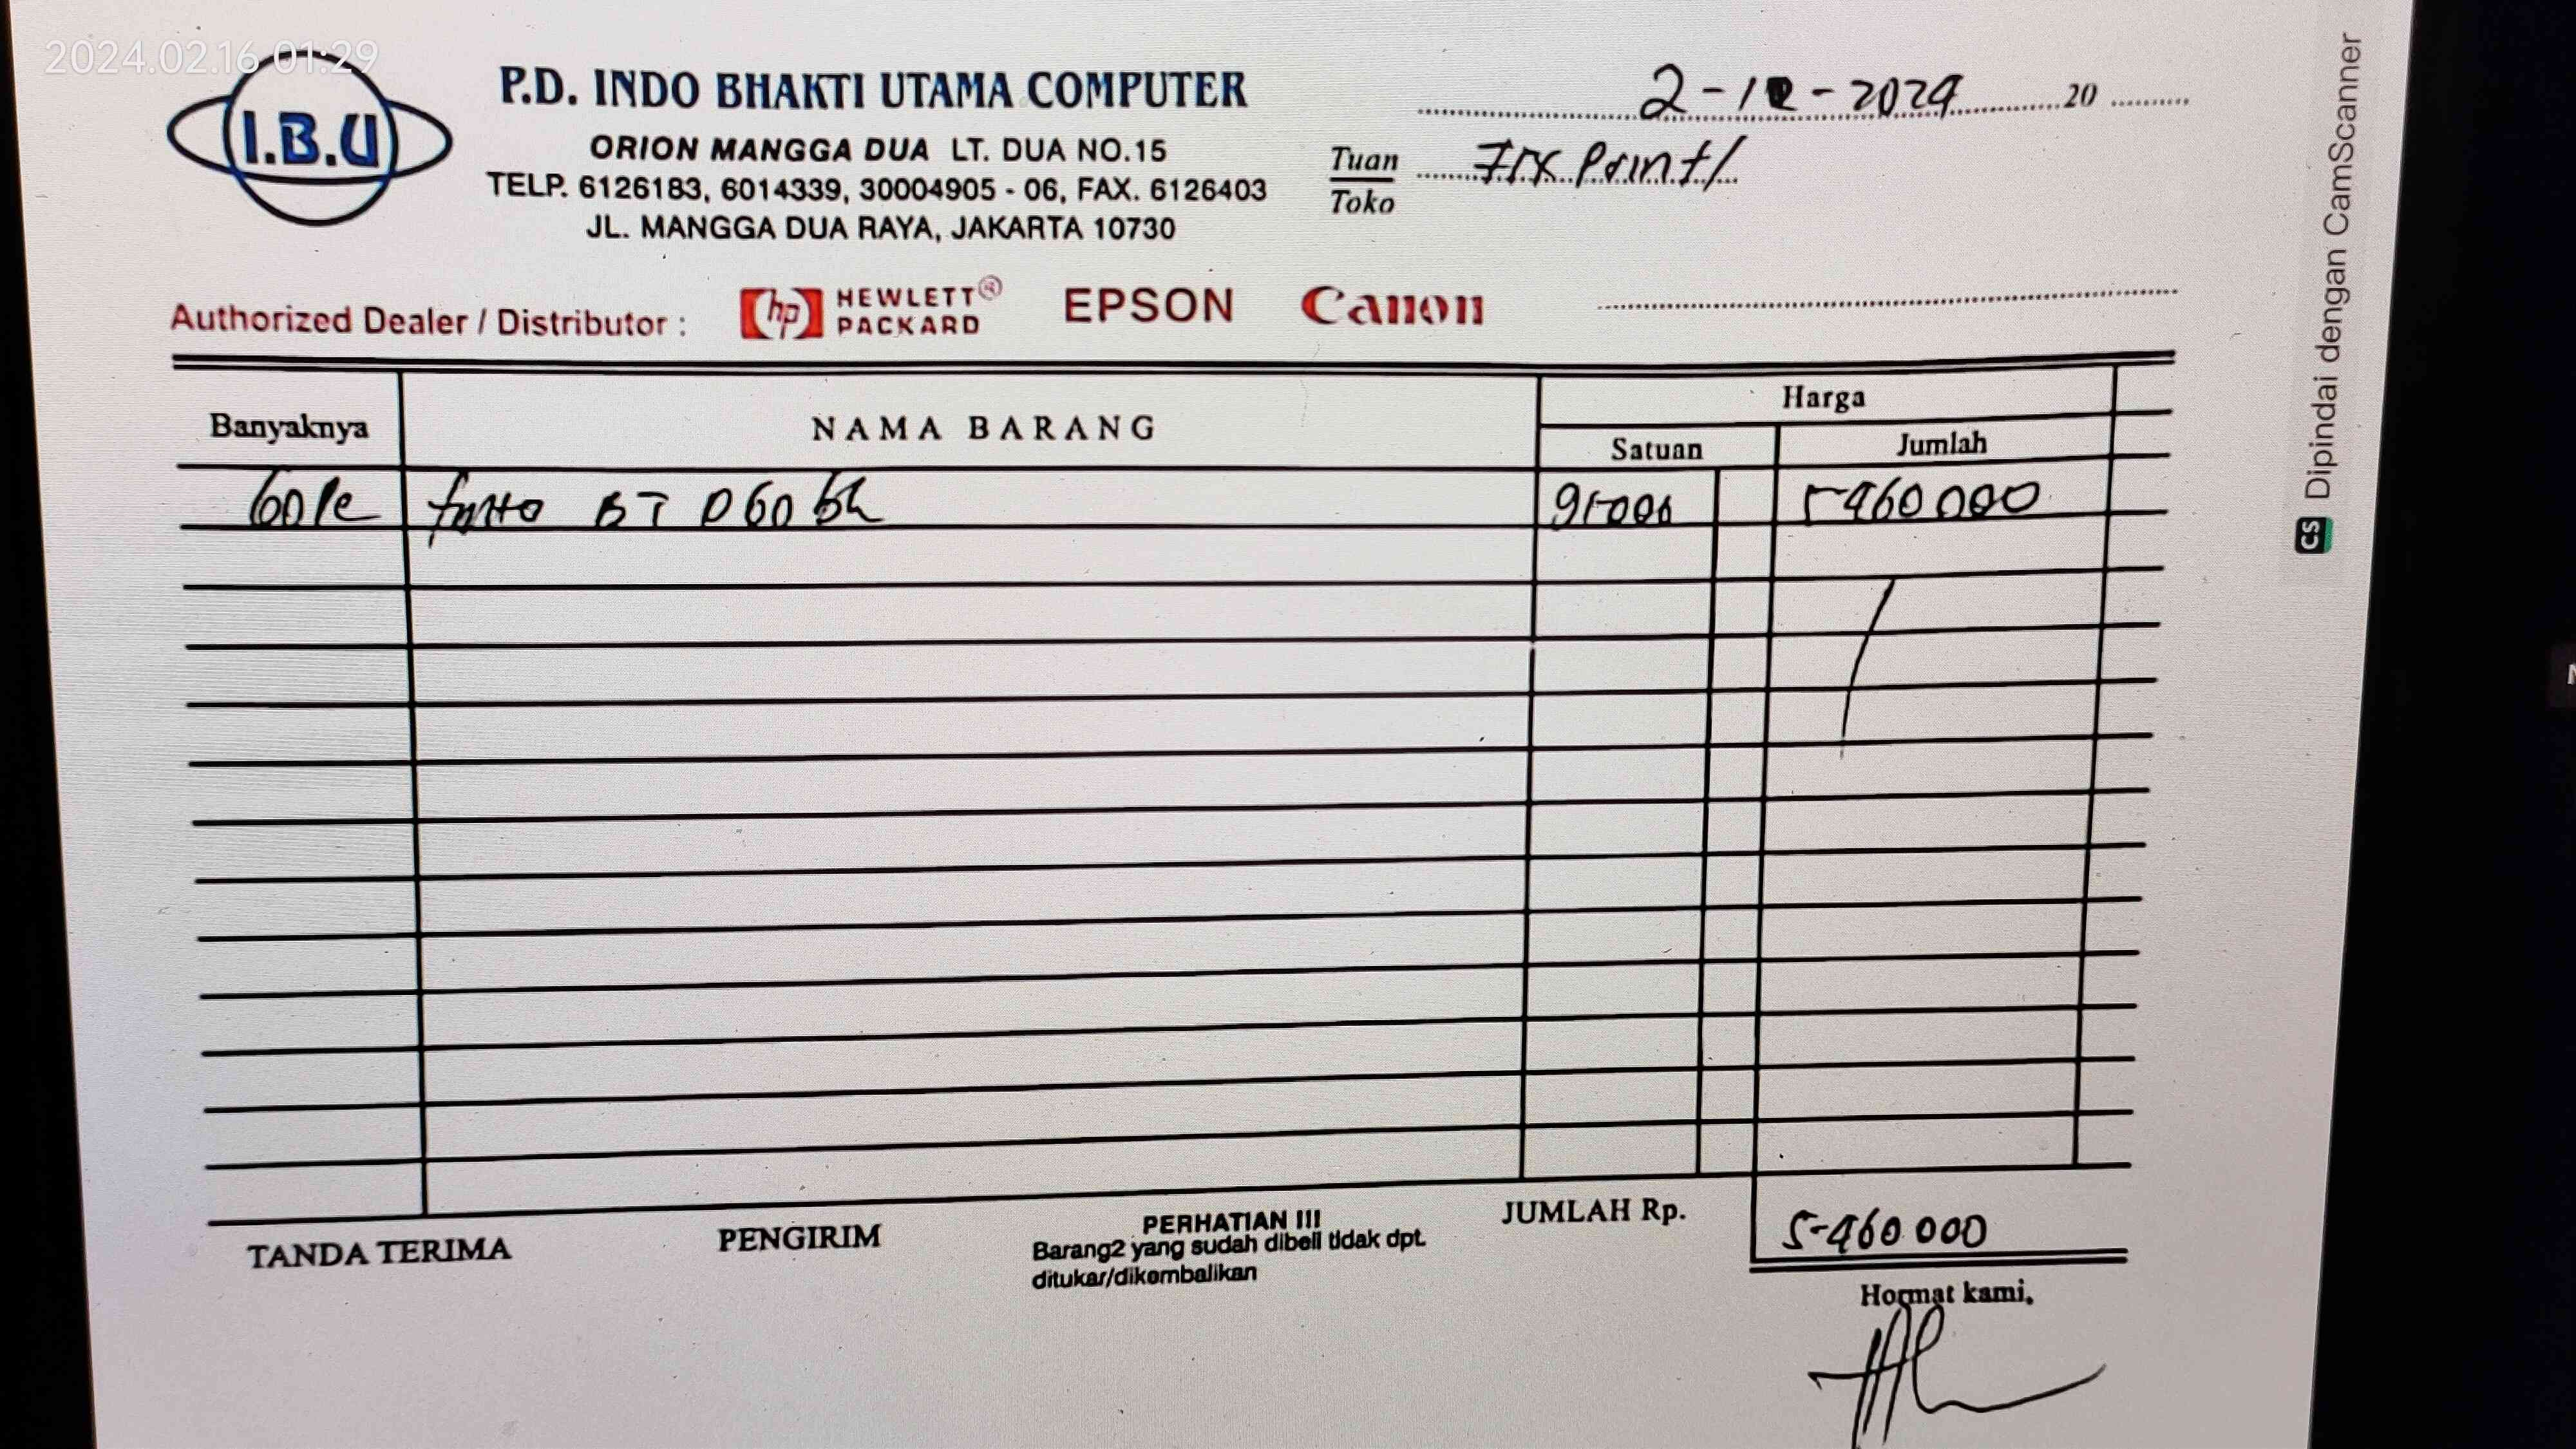 2024.02.16 01:29
I.B.U
P.D. INDO BHAKTI UTAMA COMPUTER
ORION MANGGA DUA LT. DUA NO.15
TELP. 6126183, 6014339, 30004905 - 06, FAX. 6126403
JL. MANGGA DUA RAYA, JAKARTA 10730
20
Tuan Print
Toko
Authorized Dealer / Distributor : hp HEWLETT® PACKARD EPSON Canon
Banyaknya NAMA BARANG Harga
Satuan Jumlah
BT D60 bk 91000 5460000
JUMLAH Rp. 5-460 000
TANDA TERIMA PENGIRIM PERHATIAN III
Barang2 yang sudah dibeli tidak dpt.
ditukar/dikembalikan
Hormat kami,
CS Dipindai dengan CamScanner